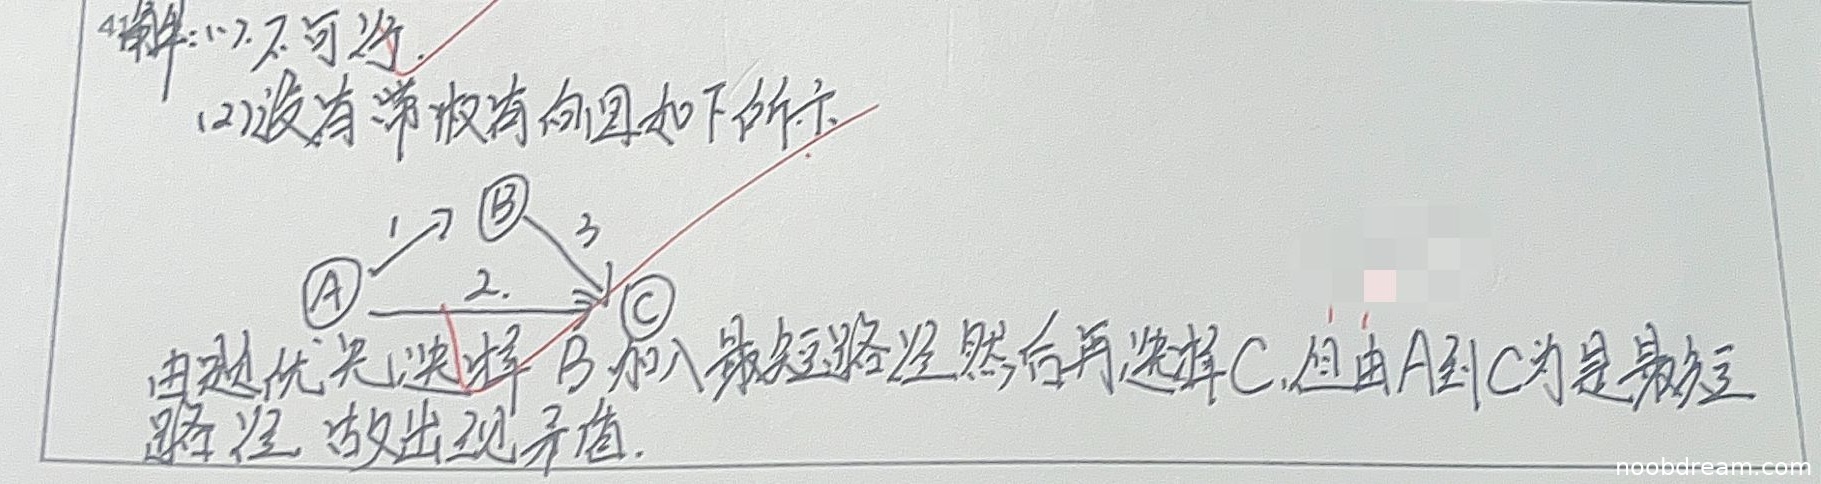 41解:(1).不可行.
(2)设有带权有向图如下所示
B
1
3
A
2.
C
由题优先选择B加入最短路径然后再选择C,但由A到C为是最短
路径 故出现矛盾.
noobdream.com